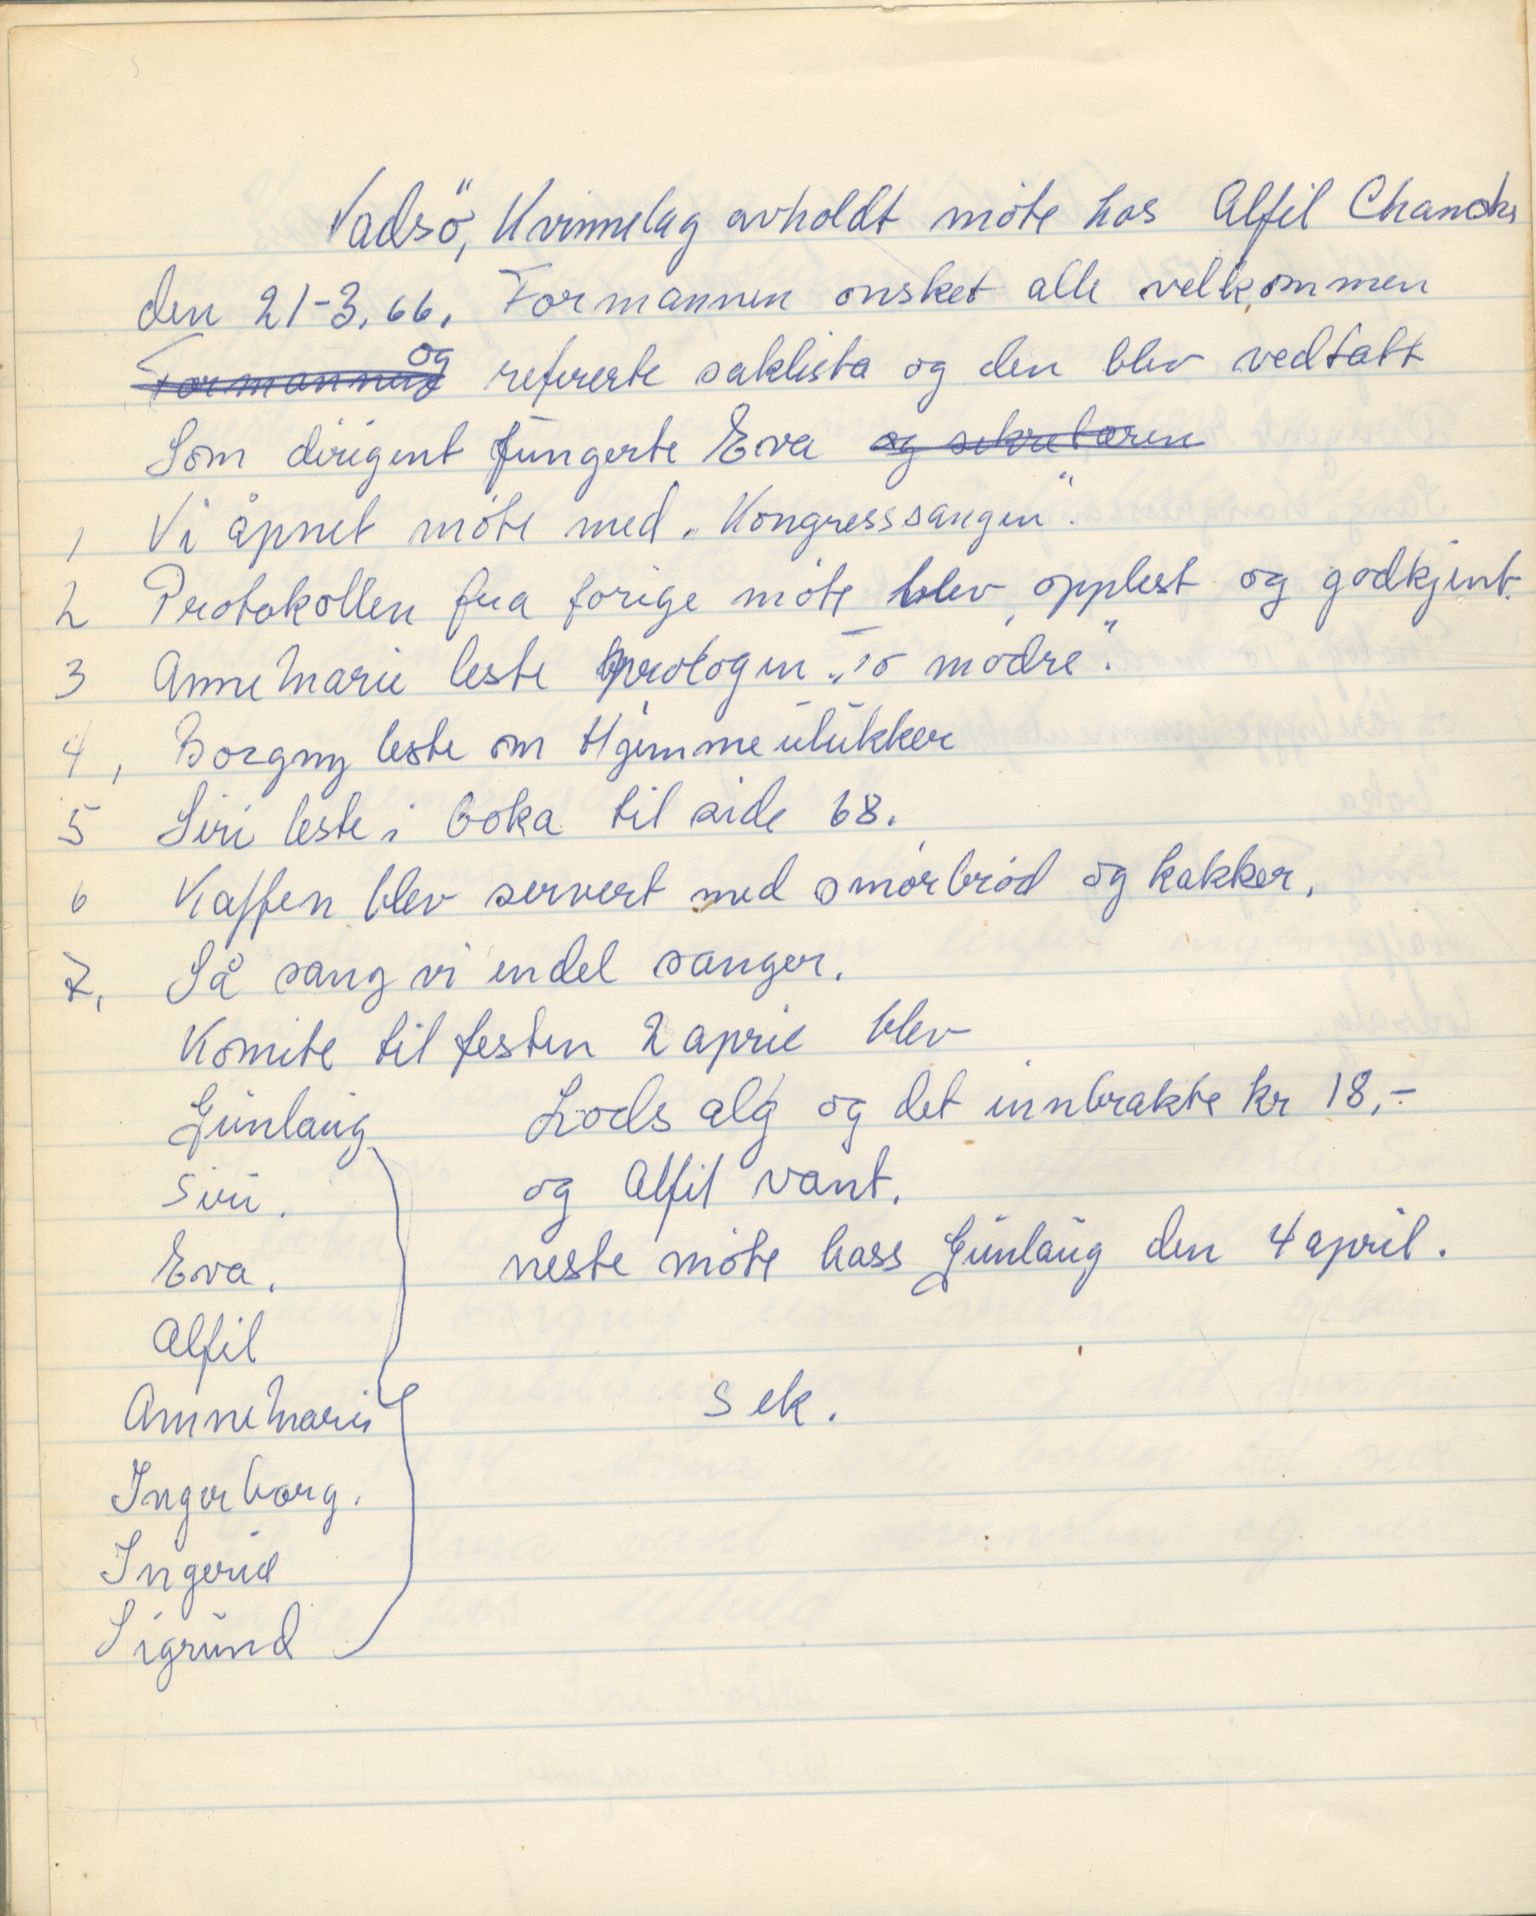 Vadsö, Kvinnelag avholdt möte hos Alfil
den 21-3.66. Formannen onsket alle velkommen
Formannen og refererte saklista og den blev vedtatt
Som dirigent fungerte Eva og sekretæren
1 Vi åpnet möte med „Kongresssangen".
2 Protokollen fra forige möte blev opplest og godkjent.
3 Anne Marie leste prologen „To mödre".
4, Borgny leste om Hjemmeulükker
5 Siri leste i boka til side 68.
6 Kaffen blev servert med smörbröd og kakker.
7, Så sang vi endel sanger.
Komite til festen 2 april blev
Günlaüg Lodsalg og det innbrakte kr 18,-
Siri. og Alfil vant.
Eva. neste möte hass Günlaüg den 4 april.
Alfil
Anne Marie Sek.
Ingerborg.
Ingerid
Sigründ